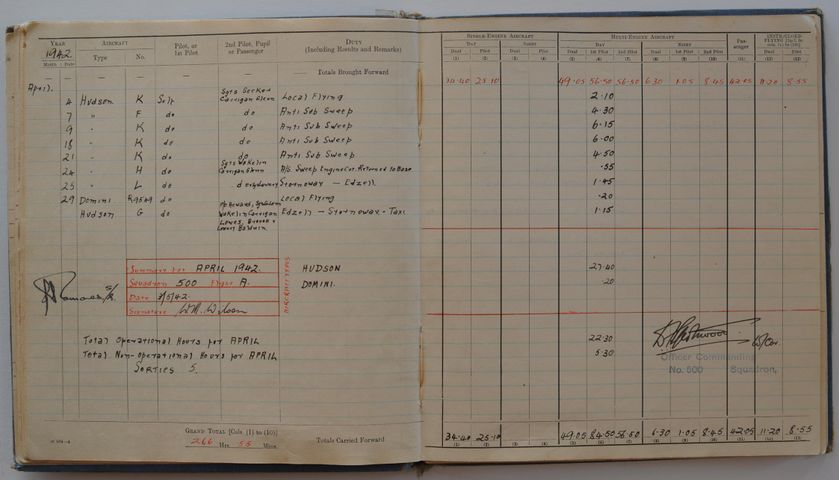 YEAR AIRCRAFT Pilot, or 1st Pilot 2nd Pilot, Pupil or Passenger DUTY (Including Results and Remarks)
1942 Type No.
Month Date
— — — — — Totals Brought Forward
April.
4 Hudson K Self Local Flying
7 " F do do Anti Sub Sweep
9 " K do do Anti Sub Sweep
18 " K do do Anti Sub Sweep
21 " K do do Anti Sub Sweep
24 " H do A/S Sweep Returned to Base
25 " L do Stornoway — Edzell
29 Domini do Local Flying
Hudson G do Edzell — Stornoway - Taxi
Summary for APRIL 1942. HUDSON
Squadron 500 Flight A. DOMINI.
Date 3/5/42
Signature W.M. Wilson
AIRCRAFT TYPES
Total Operational Hours for APRIL
Total Non-Operational Hours for APRIL
SORTIES 5.
GRAND TOTAL [Cols. (1) to (10)]
266 Hrs. 55 Mins. Totals Carried Forward
SINGLE-ENGINE AIRCRAFT MULTI-ENGINE AIRCRAFT Passenger
DAY NIGHT DAY NIGHT
Dual Pilot Dual Pilot Dual 1st Pilot 2nd Pilot Dual 1st Pilot 2nd Pilot Dual Pilot
(1) (2) (3) (4) (5) (6) (7) (8) (9) (10) (11) (12) (13)
34.40 25.10 49.05 56.50 56.50 6.30 1.05 8.45 42.05 11.20 8.55
2.10
4.30
6.15
6.00
4.50
.55
1.45
.20
1.15
27.40
.20
22.30
5.30
W/Cdr.
Officer Commanding
No. 500 Squadron,
34.40 25.10 49.05 84.50 56.50 6.30 1.05 8.45 42.05 11.20 8.55
(1) (2) (3) (4) (5) (6) (7) (8) (9) (10) (11) (12) (13)